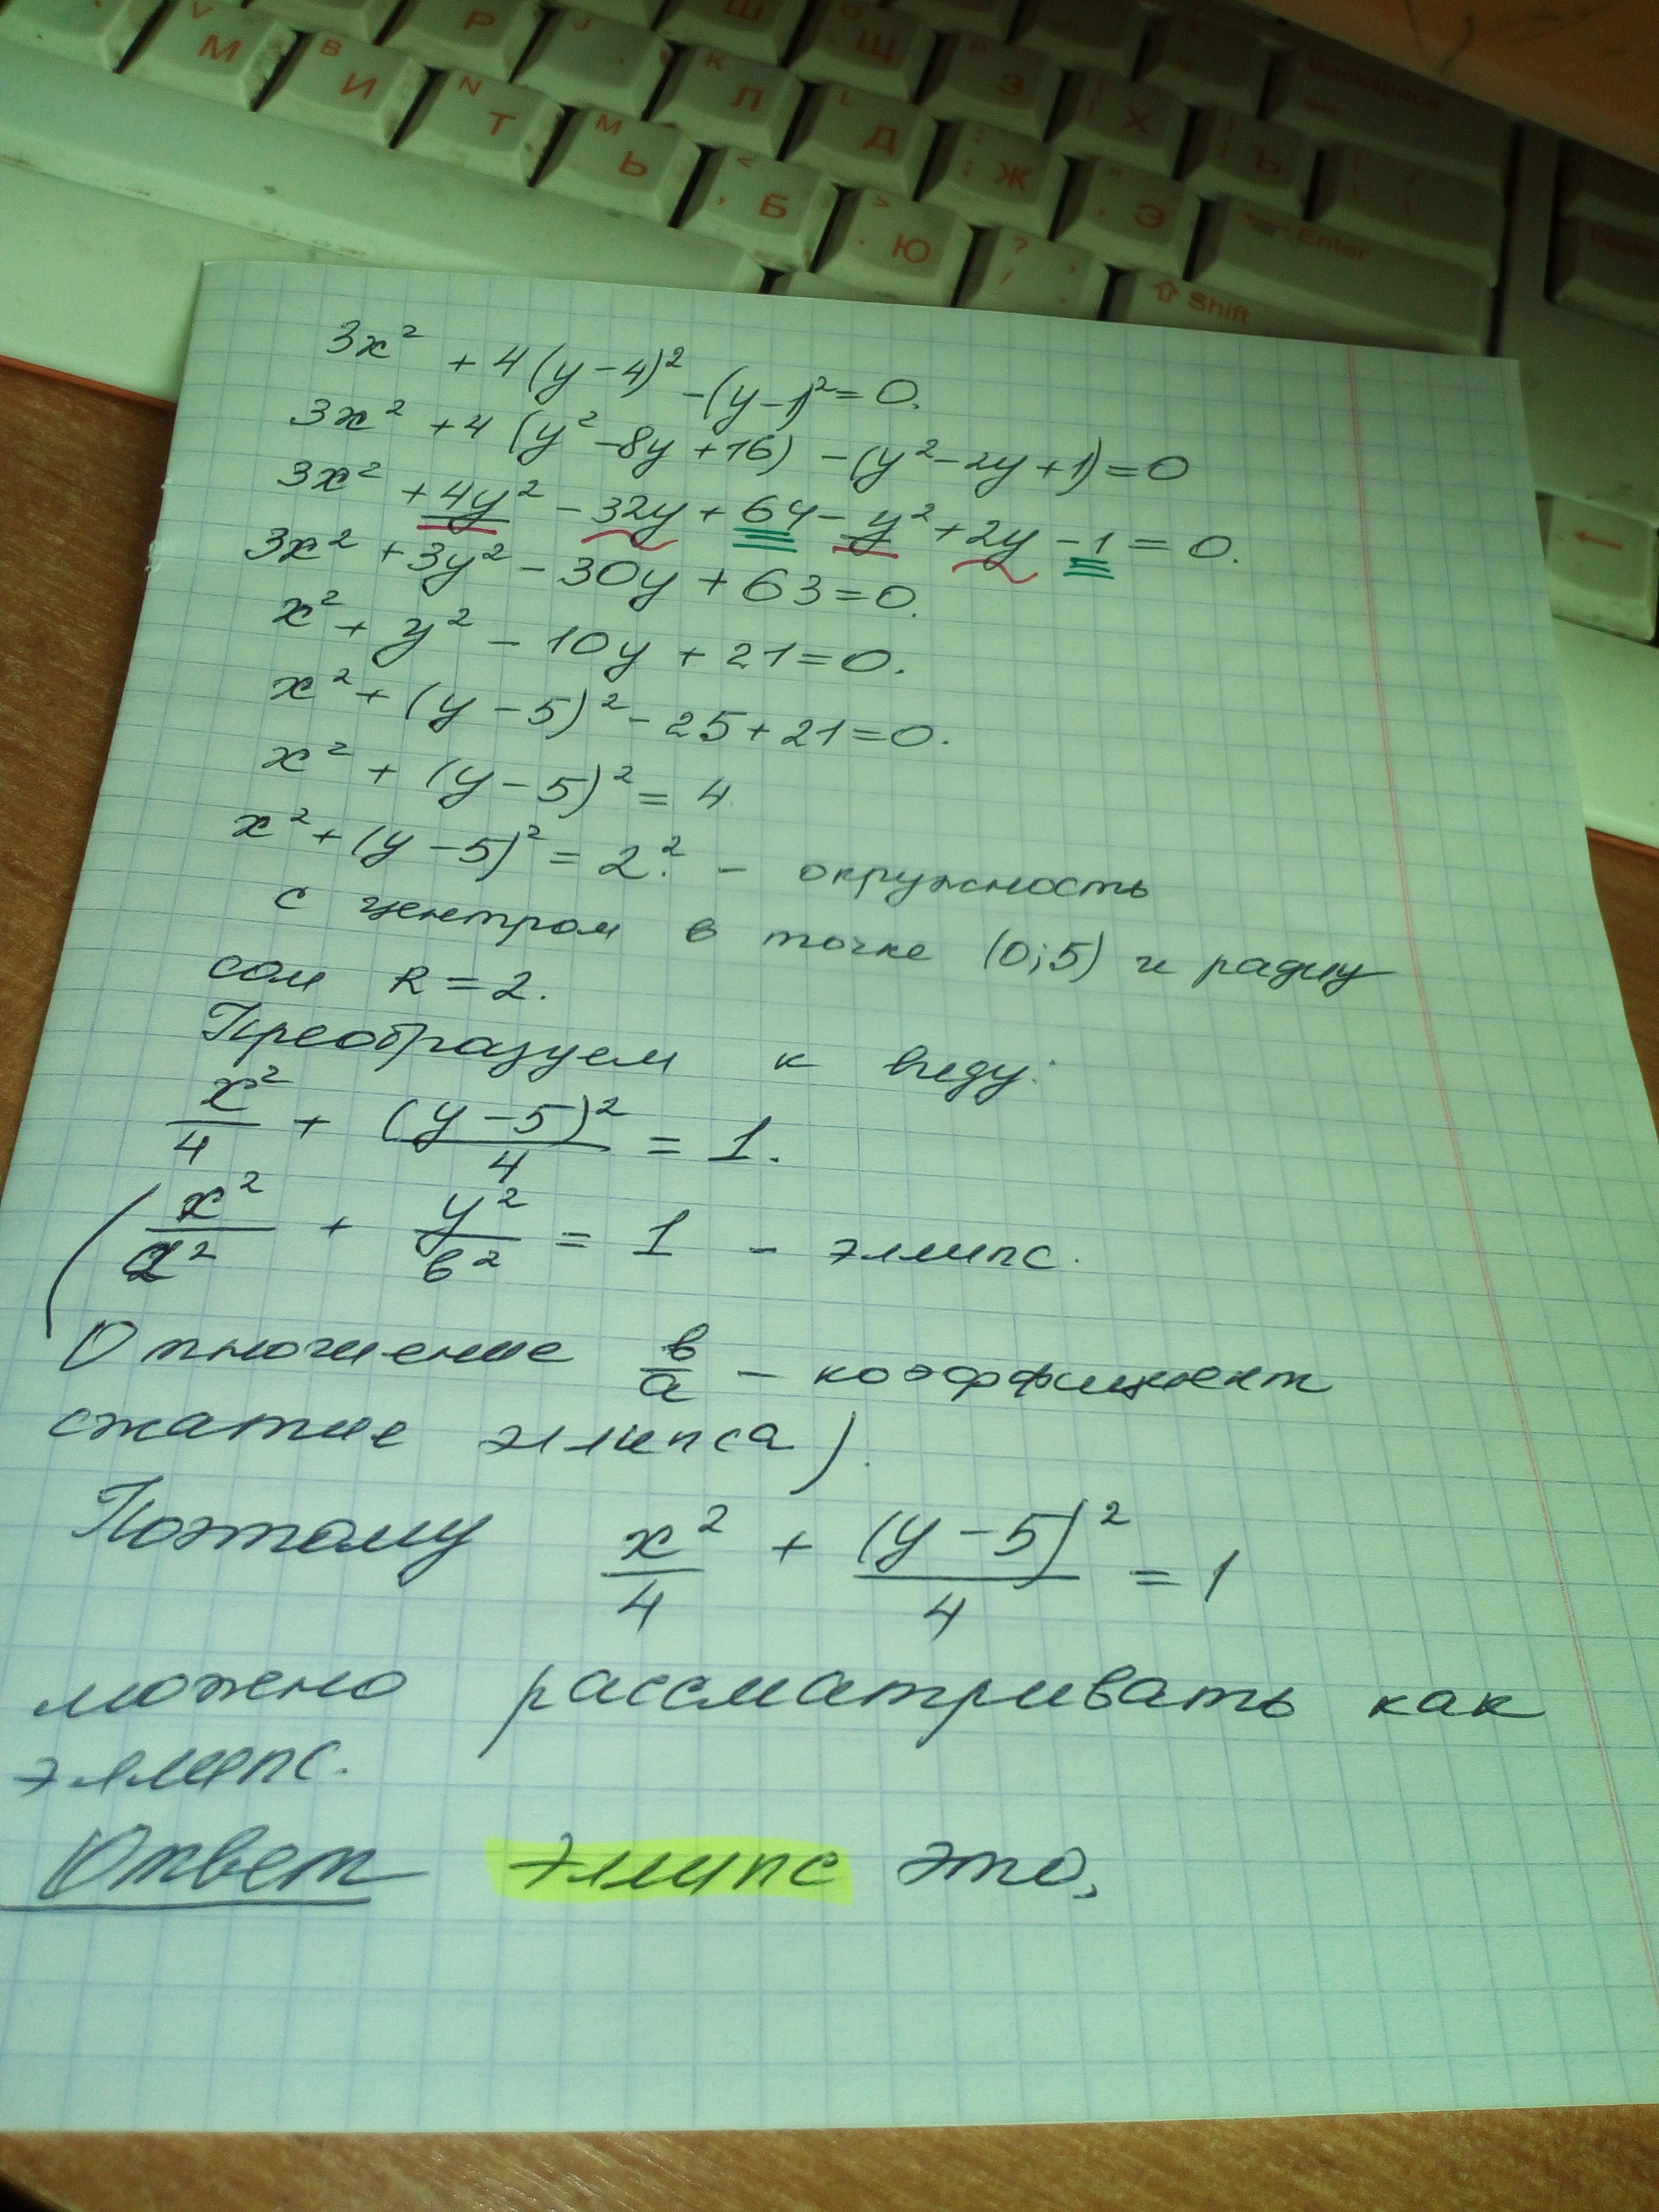 Ш
Щ
V
М
B
И
Р
J
K
Л
З
Х
Backspace
N
Т
M
Ь
L
Д
Ж
Ъ
Б
Ю
Э
Enter
Shift
3x² + 4(y-4)² - (y-1)² = 0.
3x² + 4(y² - 8y + 16) - (y² - 2y + 1) = 0
3x² + 4y² - 32y + 64 - y² + 2y - 1 = 0.
3x² + 3y² - 30y + 63 = 0.
x² + y² - 10y + 21 = 0.
x² + (y - 5)² - 25 + 21 = 0.
x² + (y - 5)² = 4
x² + (y - 5)² = 2². - окружность
с центром в точке (0;5) и радиу
сом R = 2.
Преобразуем к виду:
x²/4 + (y-5)²/4 = 1.
(x²/a² + y²/в² = 1 - элипс.
Отношение в/a - коэффициент
сжатие элипса).
Поэтому x²/4 + (y-5)²/4 = 1
можно рассматривать как
элипс.
Ответ элипс это,